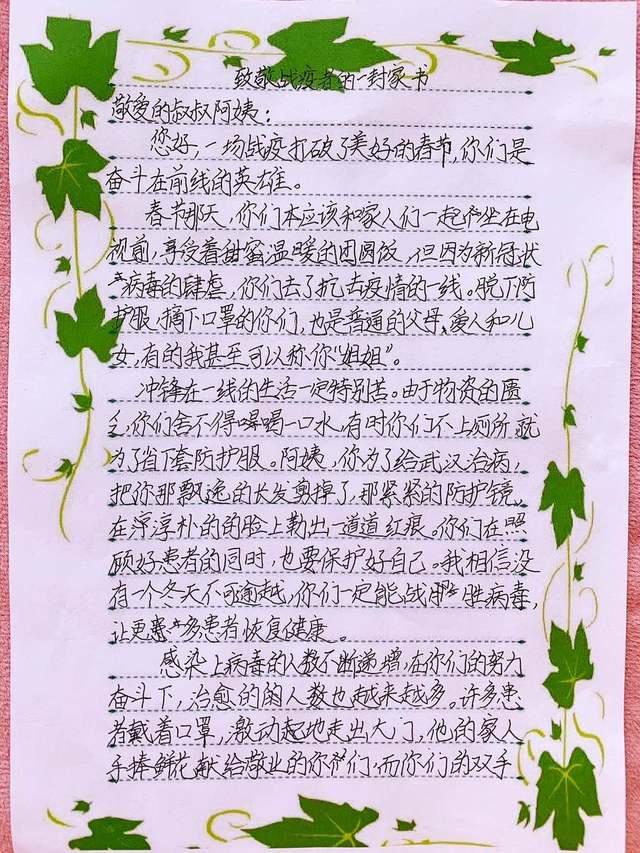 致敬战疫者的一封家书
敬爱的叔叔阿姨：
您好，一场战疫打破了美好的春节，你们是
奋斗在前线的英雄。
春节那天，你们本应该和家人们一起坐在电
视前，享受着甜蜜温暖的团圆饭，但因为新冠状
病毒的肆虐，你们去了抗击疫情的一线。脱下防
护服，摘下口罩的你们，也是普通的父母，爱人和儿
女，有的我甚至可以称你“姐姐”。
冲锋在一线的生活一定特别苦。由于物资的匮
乏，你们舍不得喝一口水，有时你们不上厕所，就
为了省下套防护服。阿姨，你为了给武汉治病，
把你那飘逸的长发剪掉了，那紧紧的防护镜，
在淳朴的的脸上勒出一道道红痕。你们在照
顾好患者的同时，也要保护好自己。我相信没
有一个冬天不可逾越，你们一定能战胜病毒，
让更多患者恢复健康。
感染上病毒的人数不断递增，在你们的努力
奋斗下，治愈的的人数也越来越多。许多患
者戴着口罩，激动起地走出大门，他的家人
手捧鲜花献给敬业的你们，而你们的双手